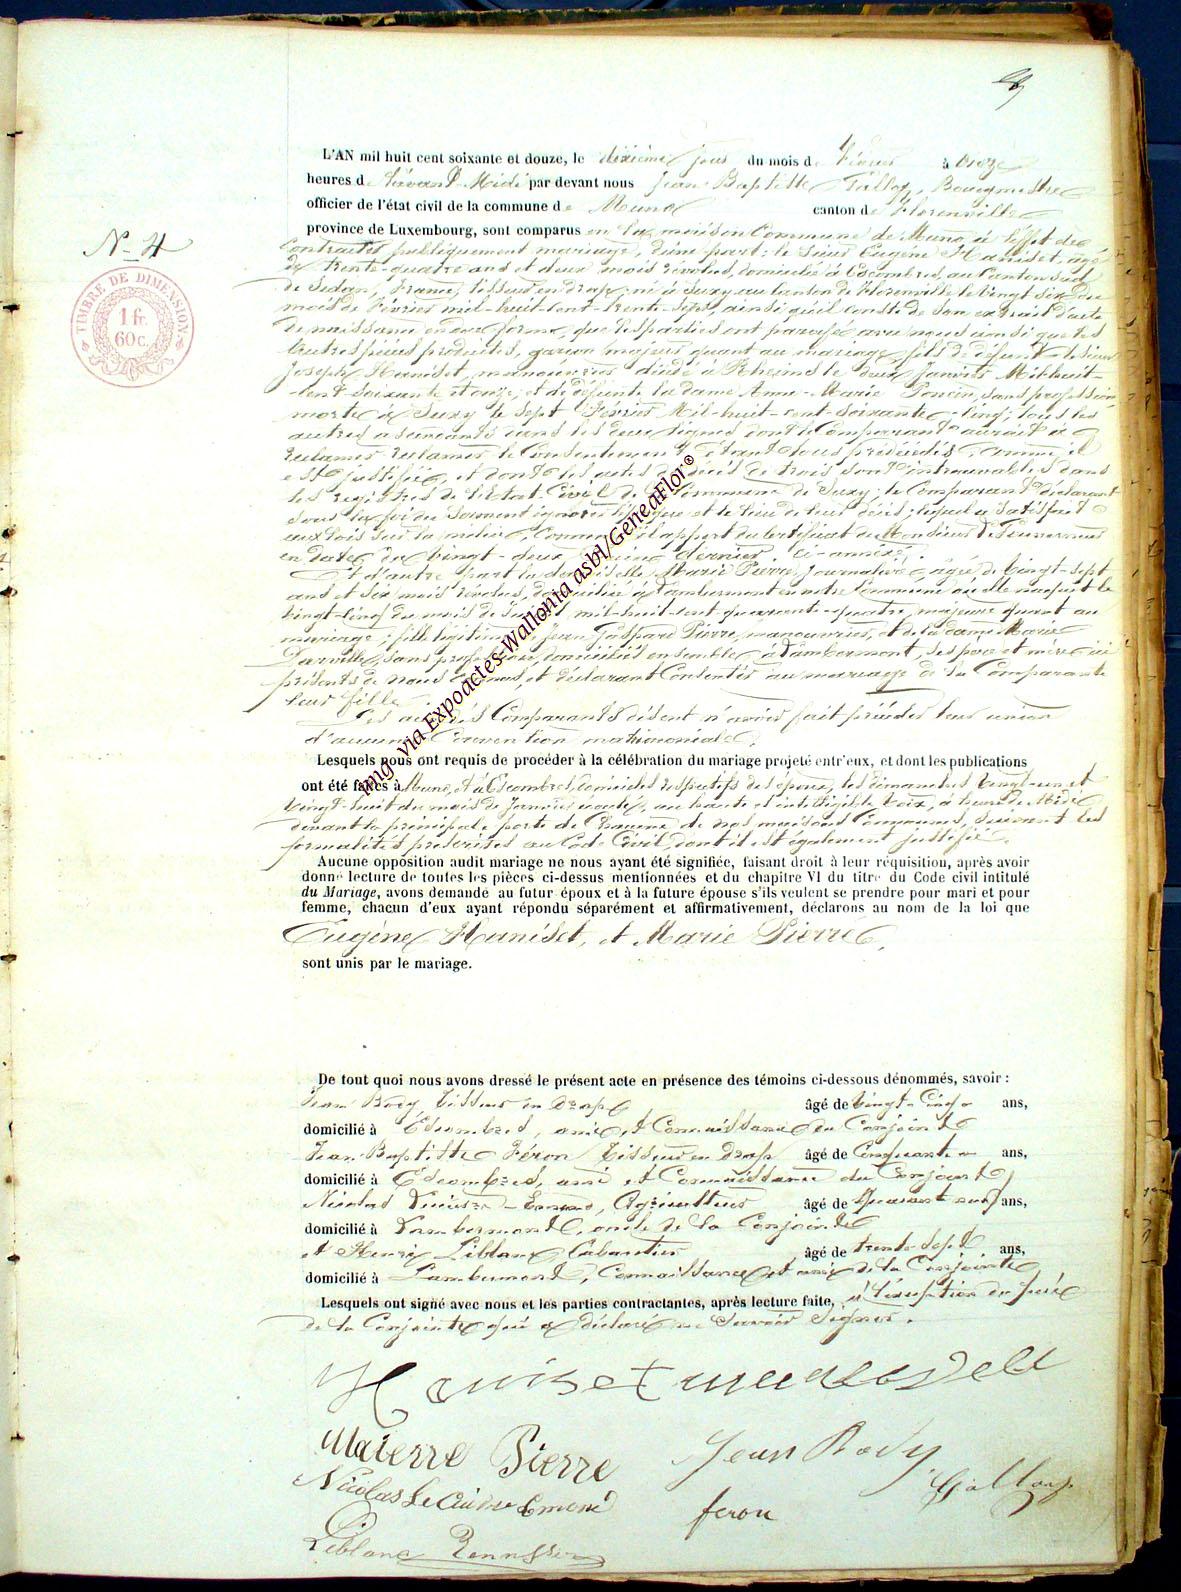 N° 4
TIMBRE DE DIMENSION
1 fr.
60 c.
L'AN mil huit cent soixante et douze, le dixième jour du mois de Février à onze
heures de l'avant-Midi par devant nous Jean Baptiste Bourgmestre
officier de l'état civil de la commune de Muno canton de Florenville
province de Luxembourg, sont comparus en la maison Commune de Muno à l'effet de
contracter publiquement mariage, d'une part: le Sieur Eugène Haniset, âgé
de trente-quatre ans et deux mois révolus, domicilié à Escombres, au Canton sud
de Sedan, France, tisseur en drap, né à Suxy, au Canton de Florenville le vingt six du
mois de Février mil-huit-cent-trente-sept, ainsi qu'il conste de son extrait d'acte
de naissance en due forme, que les parties ont paraphé avec nous ainsi que les
autres pièces produites, garçon majeur quant au mariage, fils de défunt le sieur
Joseph Haniset, manouvrier décédé à Rheims le deux Janvier Mil-huit-
-cent-soixante et onze, et de défunte la dame Anne-Marie Poncin, sans profession
morte à Suxy le sept Février Mil-huit-cent-soixante-cinq; tous les
autres ascendants dans les deux lignes dont le Comparant aurait à
réclamer le Consentement étant tous prédécédés, comme il
est justifié, et dont les actes de décès de trois sont introuvables dans
les registres de l'Etat-Civil de la Commune de Suxy; le Comparant déclarant
sous la foi du Serment ignorer l'époque et le lieu de leur décès; lequel a satisfait
aux lois sur la milice, comme il appert du certificat de Monsieur le Gouverneur
en date du vingt-deux dernier ci-annexé,
Et d'autre part la demoiselle Marie Pierre, Journalière, âgée de Vingt-sept
ans et six mois révolus, domiciliée à Lambermont en notre Commune où elle naquit le
vingt-cinq du mois de Juillet mil-huit-cent-quarante-quatre, majeure quant au
mariage; fille légitime de Jean Gaspard Pierre, manouvrier, et de la dame Marie
Darville, sans profession, domiciliés ensemble à Lambermont, ses père et mère ici
présents de nous connus, et déclarant Consentir au mariage de la Comparante
leur fille.
Les Comparants disent n'avoir fait précéder leur union
d'aucune Convention matrimoniale.
Lesquels nous ont requis de procéder à la célébration du mariage projeté entr'eux, et dont les publications
ont été faites à Muno, et à Escombres, domiciles respectifs des époux, les dimanches Vingt-un et
Vingt-huit du mois de Janvier écoulé, au haute et intelligible voix, à heure de Midi
devant la principale porte de chacune de nos maisons Communes, suivant les
formalités prescrites au Code Civil, dont il est également justifié.
Aucune opposition audit mariage ne nous ayant été signifiée, faisant droit à leur réquisition, après avoir
donné lecture de toutes les pièces ci-dessus mentionnées et du chapitre VI du titre du Code civil intitulé
du Mariage, avons demandé au futur époux et à la future épouse s'ils veulent se prendre pour mari et pour
femme, chacun d'eux ayant répondu séparément et affirmativement, déclarons au nom de la loi que
Eugène Haniset, et Marie Pierre,
sont unis par le mariage.
De tout quoi nous avons dressé le présent acte en présence des témoins ci-dessous dénommés, savoir :
Jean Tisseur en Drap âgé de vingt-cinq ans,
domicilié à Escombres, ami et Connaissance du Conjoint
Jean Baptiste Féron Tisseur en Drap âgé de Cinquante ans,
domicilié à Escombres, ami et Connaissance du Conjoint
Nicolas Agriculteur âgé de ans,
domicilié à Lambermont, oncle de la Conjointe
et Henri Leblanc Cabaretier âgé de trente-sept ans,
domicilié à Lambermont, Connaissance et ami de la Conjointe
Lesquels ont signé avec nous et les parties contractantes, après lecture faite, à l'exception du père
de la Conjointe qui a déclaré ne Savoir Signer.
Haniset
Maierre Pierre
Jean
Nicolas
feron
Leblanc
img via Expoactes-Wallonia asbl/GeneaFlor®